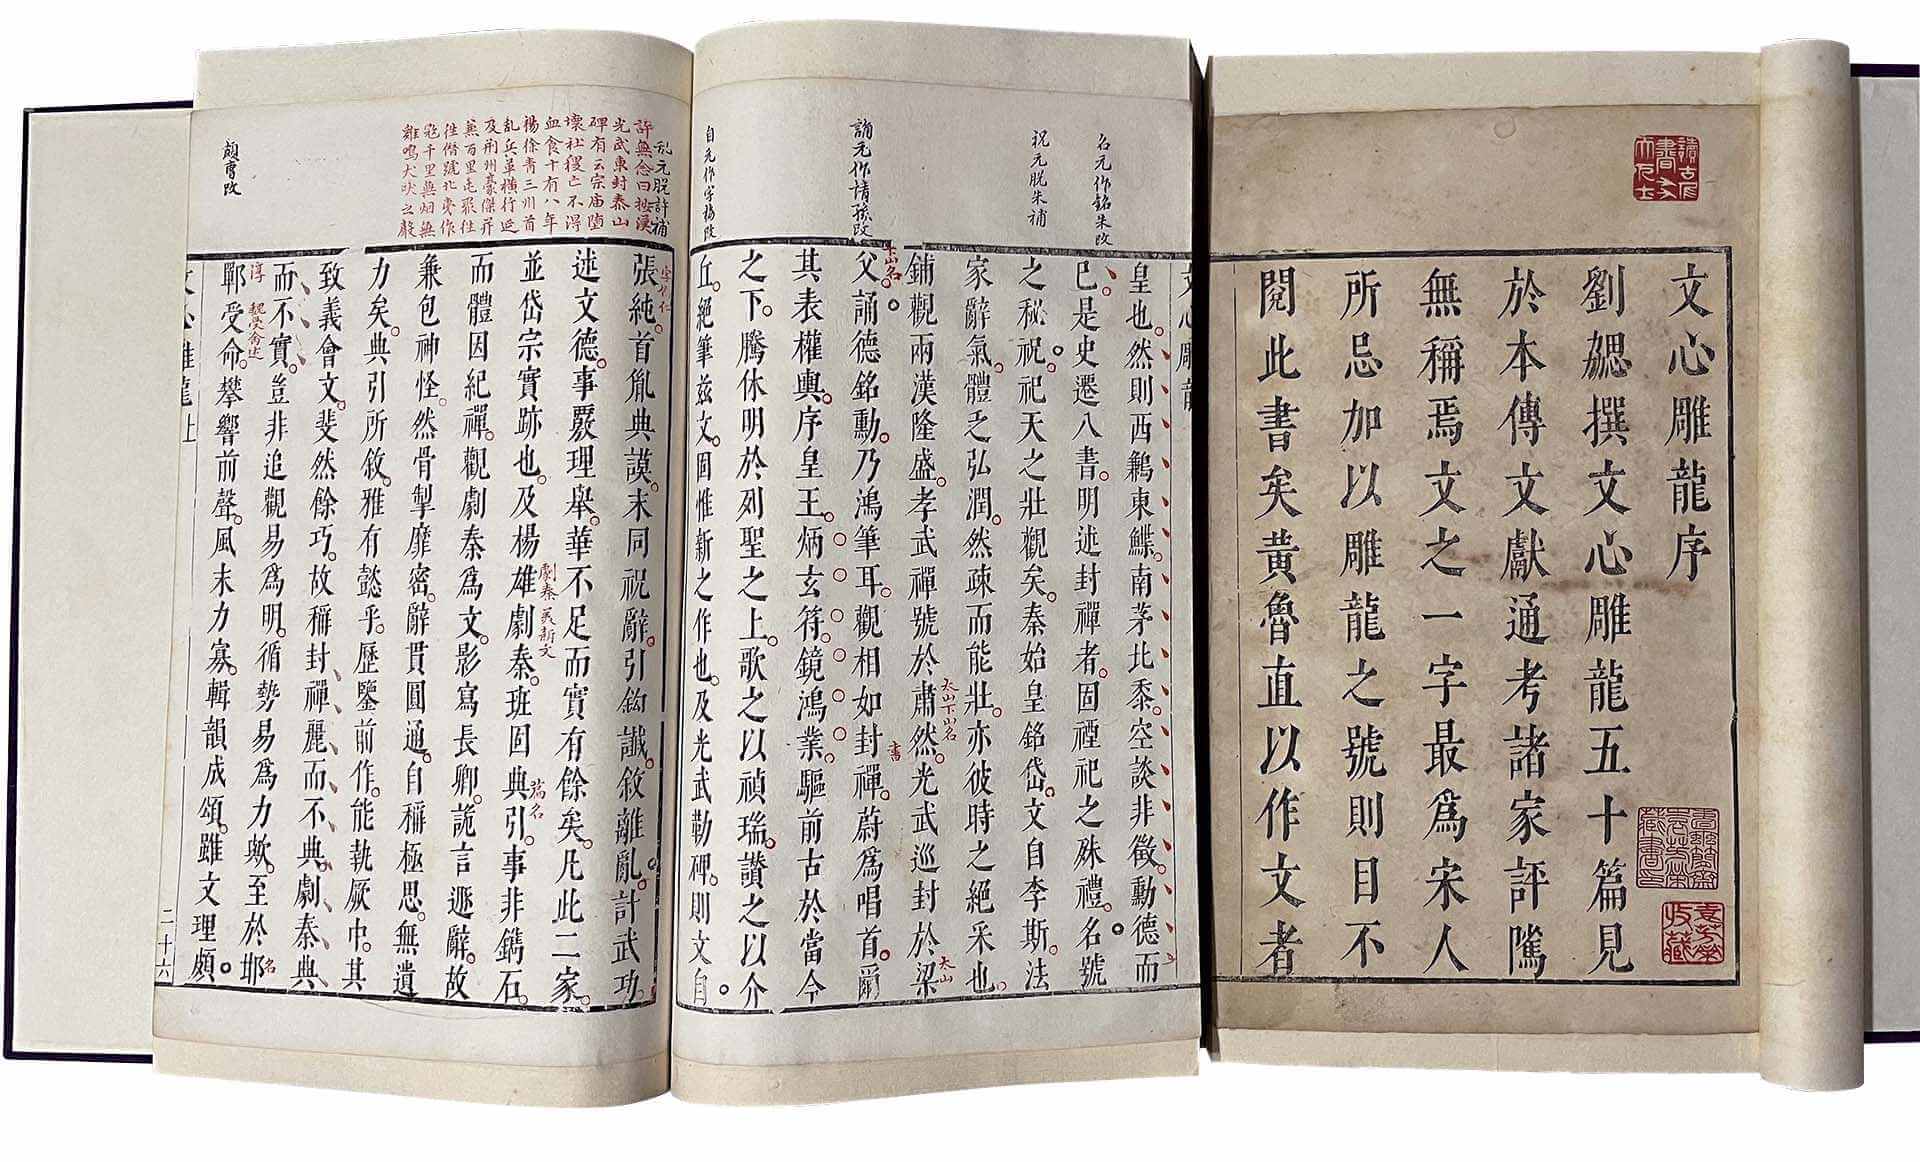 文心雕龍序
劉勰撰文心雕龍五十篇見
於本傳文獻通考諸家評隲
無稱焉文之一字最爲宋人
所忌加以雕龍之號則目不
閱此書矣黄魯直以作文者
名元作銘朱改
祝元脫朱補
誦元作情孫改
自元作字楊改
文心雕龍
皇也。然則西鶼東鰈。南茅北黍。空談非徵。勳德而
已。是史遷八書。明述封禪者。固禋祀之殊禮。名號
之秘祝。祀天之壯觀矣。秦始皇銘岱。文自李斯。法
家辭氣。體乏弘潤。然疎而能壯。亦彼時之絕采也。
鋪觀兩漢隆盛。孝武禪號於肅然。光武巡封於梁
父。誦德銘勳。乃鴻筆耳。觀相如封禪。蔚爲唱首。爾
其表權輿。序皇王。炳玄符。鏡鴻業。驅前古於當今
之下。騰休明於列聖之上。歌之以禎瑞。讚之以介
丘。絕筆茲文。固惟新之作也。及光武勒碑。則文自
下山名
太山下山名
太山
書
亂元脫許補
許無念曰按漢
光武東封泰山
碑有云宗庙墮
壞社稷亡不得
血食十有八年
楊徐青三州首
乱兵革横行延
及荆州豪傑并
兼百里屯聚往
往僭號北夷作
寇千里無烟無
雞鳴犬吠之聲
頗曹改
張純。首胤典謨。末同祝辭。引鈎讖。敘離亂。計武功。
述文德。事覈理舉。華不足而實有餘矣。凡此二家。
並岱宗實跡也。及楊雄劇秦。班固典引。事非鐫石。
而體因紀禪。觀劇秦爲文。影寫長卿。詭言遯辭。故
兼包神怪。然骨掣靡密。辭貫圓通。自稱極思。無遺
力矣。典引所敘。雅有懿乎。歷鑒前作。能執厥中。其
致義會文。斐然餘巧。故稱封禪麗而不典。劇秦典
而不實。豈非追觀易爲明。循勢易爲力歟。至於邯
鄲受命。攀響前聲。風末力寡。輯韻成頌。雖文理頗
劇秦美新文
篇名
名
淳
文心雕龍上
二十六